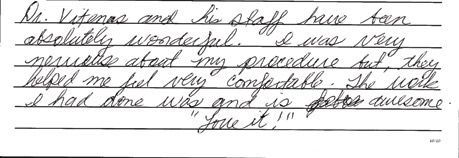 Dr. Vitenas and his staff have been
absolutely wonderful. I was very
nervous about my procedure but, they
helped me feel very comfortable. The work
I had done was and is awesome.
"Love it!"